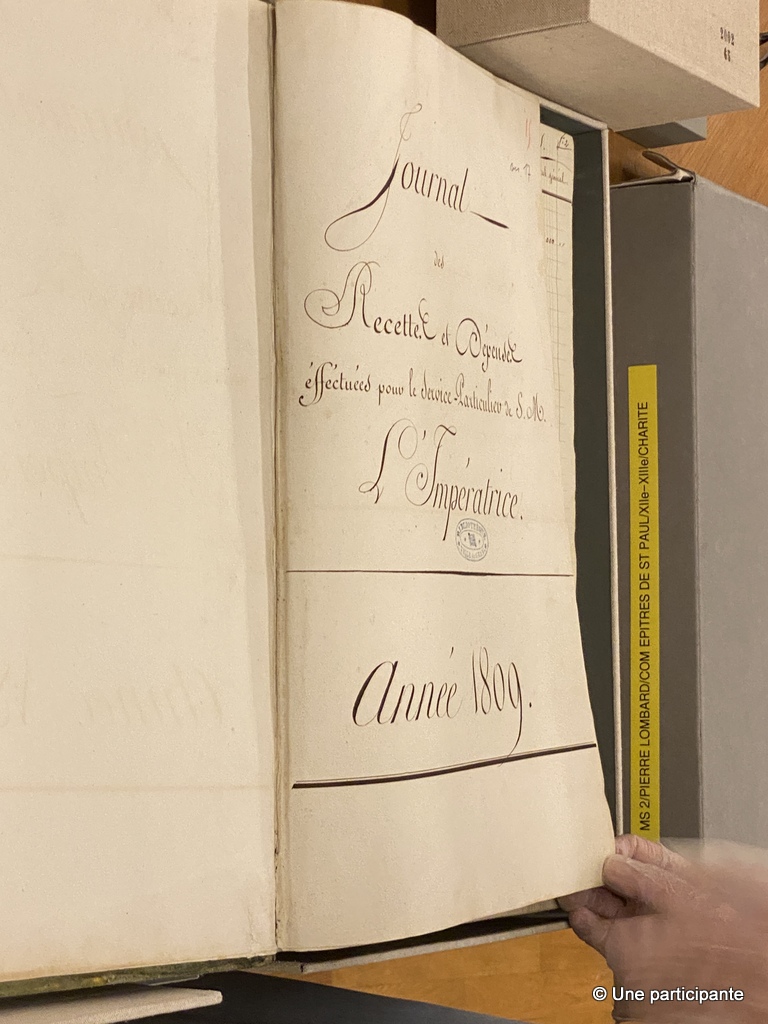 Journal
des
Recettes et Dépenses
éffectuées pour le Service Particulier de S. M.
L'Impératrice.
Année 1809.
an 17
2002
MS 2/PIERRE LOMBARD/COM EPITRES DE ST PAUL/XIIe-XIIIe/CHARITE
© Une participante